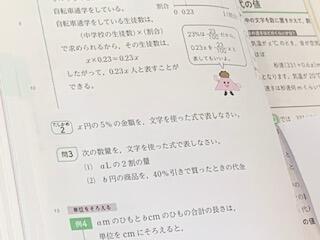 自転車通学をしている。
自転車通学をしている生徒数は,
(中学校の生徒数)×(割合)
で求められるから, その生徒数は,
x×0.23=0.23x
したがって, 0.23x人と表すことが
できる。
割合
0 0.23
1(割合)
23%は23/100だから,
0.23xを23/100xと
表してもいいよ。
たしかめ2
x円の5%の金額を, 文字を使った式で表しなさい。
問3
次の数量を, 文字を使った式で表しなさい。
(1) aLの2割の量
(2) b円の商品を, 40%引きで買ったときの代金
単位をそろえる
例4
amのひもとbcmのひもの合計の長さは,
単位をcmにそろえると,
代の値